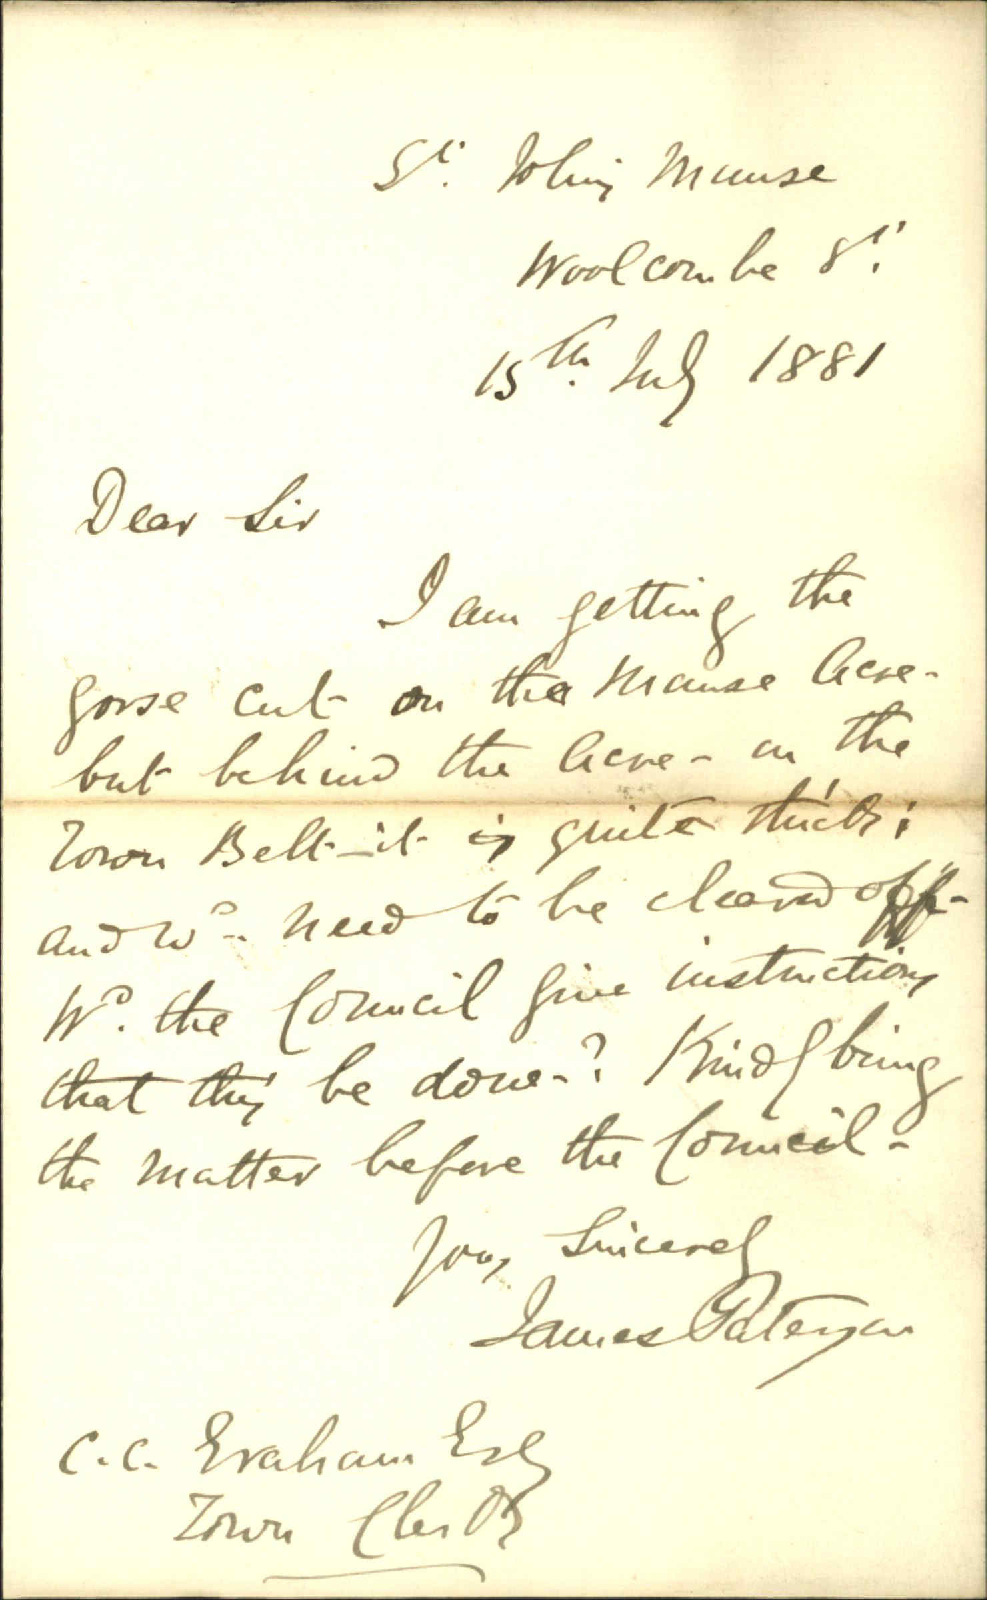 St. Johns Manse
Woolcombe St.
15th. July 1881
Dear Sir
I am getting the
gorse cut on the Manse Acre-
but behind the Acre - on the
Town Belt - it is quite thick;
and wd. need to be cleared off-
Wd. the Council give instructions
that this be done-? Kindly bring
the matter before the Council-
Yours Sincerely
James Paterson
C.C. Graham Esq
Town Clerk